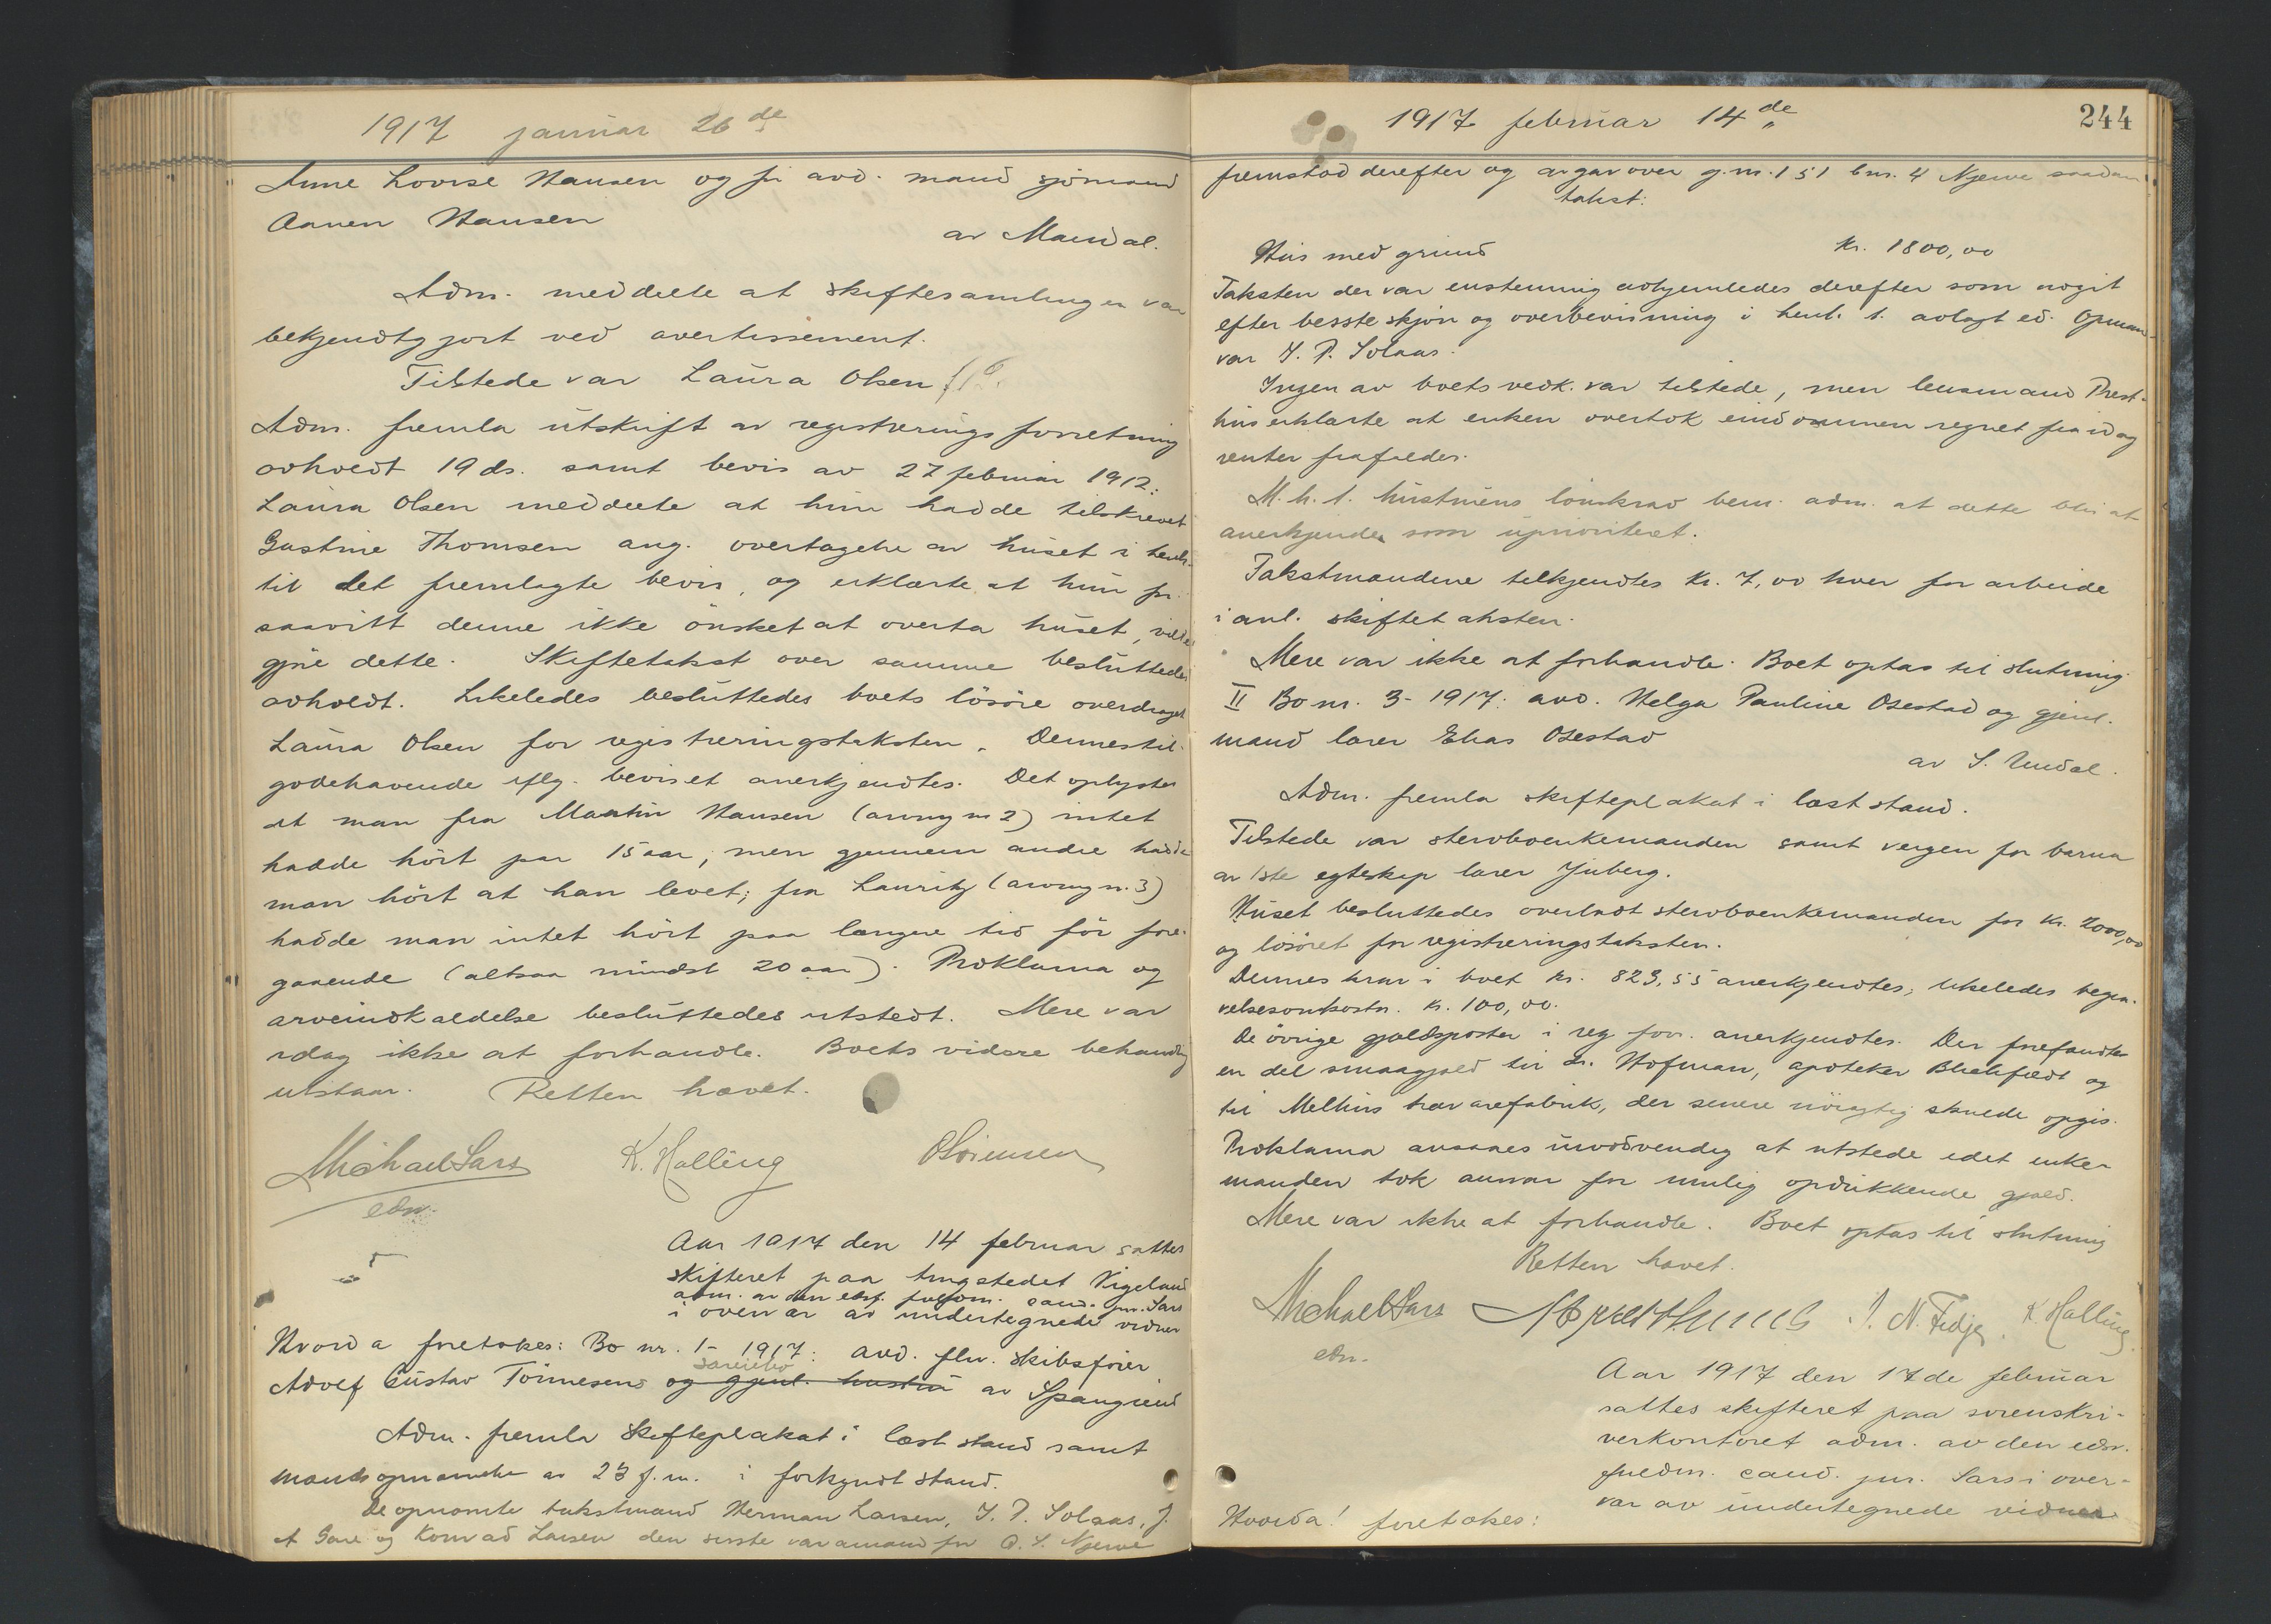 1917 januar 26de
Anne Lovise Hansen og fr. avd. mand sjömand
Aanen Hansen
av Mandal.
Adm. meddelte at skiftesamlingen var
bekjendtgjort ved avertissement.
Tilstede var Laura Olsen
Adm. fremla utskrift av registreringsforretning
avholdt 19 ds. samt bevis av 27 februar 1912:
Laura Olsen meddelte at hun hadde tilskrevet
Gustine Thomsen ang. overtagelse av huset i henh.
til det fremlagte bevis, og erklærte at hun for
saavitt denne ikke önsket at overta huset, vilde
gjöre dette. Skiftetakst over samme besluttedes
avholdt. Likeledes besluttedes boets lösöre overdraget
Laura Olsen for registreringstaksten. Dennes til-
godehavende iflg. beviset anerkjendtes. Det oplystes
at man fra Martin Hansen (arving nr 2) intet
hadde hört paa 15 aar, men gjennem andre hadde
man hört at han levet; fra Lauritz (arving n. 3)
hadde man intet hört paa længere tid för fore-
gaaende (altsaa mindst 20 aar). Proklama og
arveindkaldelse besluttedes utstedt. Mere var
idag ikke at forhandle. Boets videre behandlg
utstaar. Retten hævet.
Michael Sars K. Halling OSörensen
edsv.
Aar 1917 den 14 februar sattes
skifteret paa tingstedet Vigeland
adm. av den edsf. fuldm. cand. jur. Sars
i overvær av undertegnede vidner
Hvorda foretokes: Bo nr. 1-1917: avd. flv. skibsförer
særeiebo
Adolf Gustav Tönnesens og gjenl. hustru av Spangereid
Adm. fremla skifteplakat i læst stand samt
mandsopnævnelse av 23 f.m. i forkyndt stand.
De opnævnte takstmænd Herman Larsen, J. P. Solaas, J.
A. Gare og Konrad Larsen den sisste varamand for O. S. Njerve
1917 februar 14de
244
fremstod derefter og avgav over g.nr. 151 bnr. 4 Njerve saadan
takst:
Hus med grund kr. 1800,00
Taksten der var enstemmig avhjemledes derefter som avgit
efter besste skjön og overbevisning i henh. t. avlagt ed. Opmand
var J. P. Solaas.
Ingen av boets vedk. var tilstede, men lensmand Prest-
hus erklærte at enken overtok eiendommen regnet fra idag
renter frafaldes.
M. h. t. hustruens lönskrav bem. adm. at dette blir at
anerkjendes som uprioritert.
Takstmændene tilkjendtes kr. 7,00 hver for arbeide
i anl. skiftetaksten.
Mere var ikke at forhandle. Boet optas til slutning.
II Bo nr. 3-1917: avd. Helga Pauline Osestad og gjenl.
mand lærer Elias Osestad
av S. Undal.
Adm. fremla skifteplakat i læst stand.
Tilstede var stervboenkemanden samt vergen for barna
av 1ste egteskap lærer Juberg.
Huset besluttedes overladt stervboenkemanden for kr. 2000,00
og lösöret for registreringstaksten.
Dennes krav i boet kr. 823,55 anerkjendtes, likeledes begra-
velsesomkostn. kr. 100,00.
De övrige gjældsposter i reg. forr. anerkjendtes. Der forefandtes
en del smaagjæld til dr. Hofman, apoteker Blichfeldt og
til Melhus trævarefabrik, der senere nöiagtig skulde opgis.
Proklama ansaaes unödvendig at utstede idet enke-
manden tok ansvar for mulig opdukkende gjæld.
Mere var ikke at forhandle. Boet optas til slutning
Retten hævet.
Michael Sars Presthuus J. N. Fidje. K. Halling.
edsv.
Aar 1917 den 17de februar
sattes skifteret paa sorenskri-
verkontoret adm. av den edsv.
fuldm. cand. jur. Sars i over-
vær av undertegnede vidner
Hvorda! foretokes: